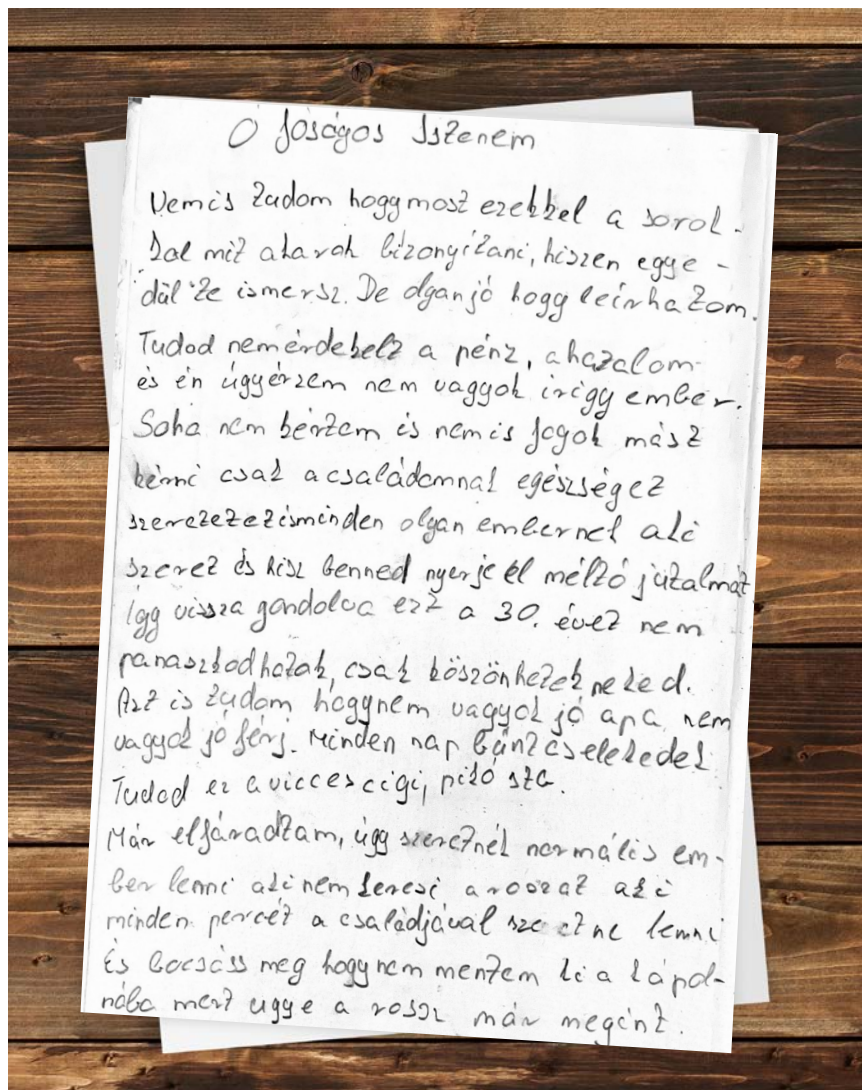 Ó Jóságos Istenem
Nemis tudom hogymost ezekkel a sorok-
kal mit akarok bizonyítani, hiszen egye-
dül te ismersz. De olyanjó hogy leírhatom.
Tudod nemérdekelt a pénz, a hatalom
és én úgyérzem nem vagyok írigy ember.
Soha nem kértem és nemis fogok mást
kérni csak acsaládomnak egészséget
szeretetetésminden olyan embernek aki
szeret és hisz benned nyerje el méltó jutalmát
így vissza gondolva ezt a 30. évet nem
panaszkodhatok, csak köszönhetek neked.
Azt is tudom hogynem vagyok jó apa, nem
vagyok jó férj. Minden nap bűnt cselekedek
Tudod ez a vicces cigi, piló sta.
Már elfáradtam, úgy szeretnék normális em-
ber lenni akinem keresi a rosszat aki
minden percét a családjával szeretne lenni
És bocsáss meg hogynem mentem ki a kápol-
nába mert ugye a rossz már megint.